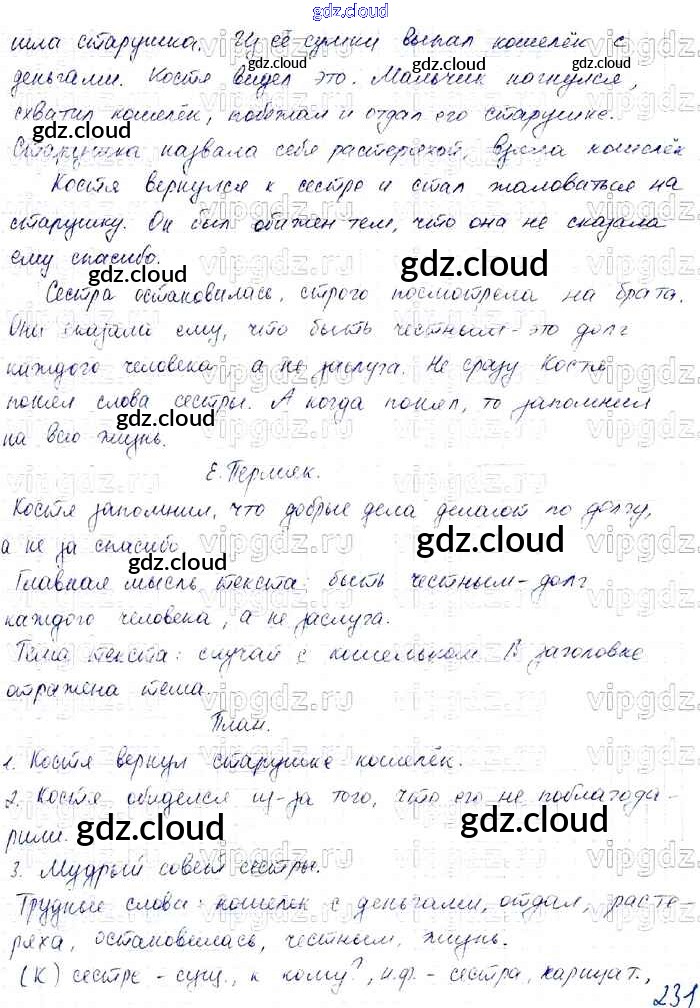 gdz.cloud
шла старушка. Из её сумки выпал кошелёк с
деньгами. Костя видел это. Мальчик нагнулся,
схватил кошелёк, побежал и отдал его старушке.
Старушка назвала себя растеряхой, взяла кошелёк
Костя вернулся к сестре и стал жаловаться на
старушку. Он был обижен тем, что она не сказала
ему спасибо.
Сестра остановилась, строго посмотрела на брата.
Они сказали ему, что быть честным - это долг
каждого человека, а не заслуга. Не сразу Костя
понял слова сестры. А когда понял, то запомнил
на всю жизнь.
Е. Пермяк.
Костя запомнил, что добрые дела делают по долгу,
а не за спасибо
Главная мысль текста: быть честным - долг
каждого человека, а не заслуга.
Тема текста: случай с кошельком В заголовке
отражена тема.
План.
1. Костя вернул старушке кошелёк.
2. Костя обиделся из-за того, что его не поблагода-
рили.
3. Мудрый совет сестры.
Трудные слова: кошелёк с деньгами, отдал, расте-
ряха, остановилась, честным, жизнь.
(К) сестре - сущ., к кому?, н.ф. - сестра, нарицат.,
231